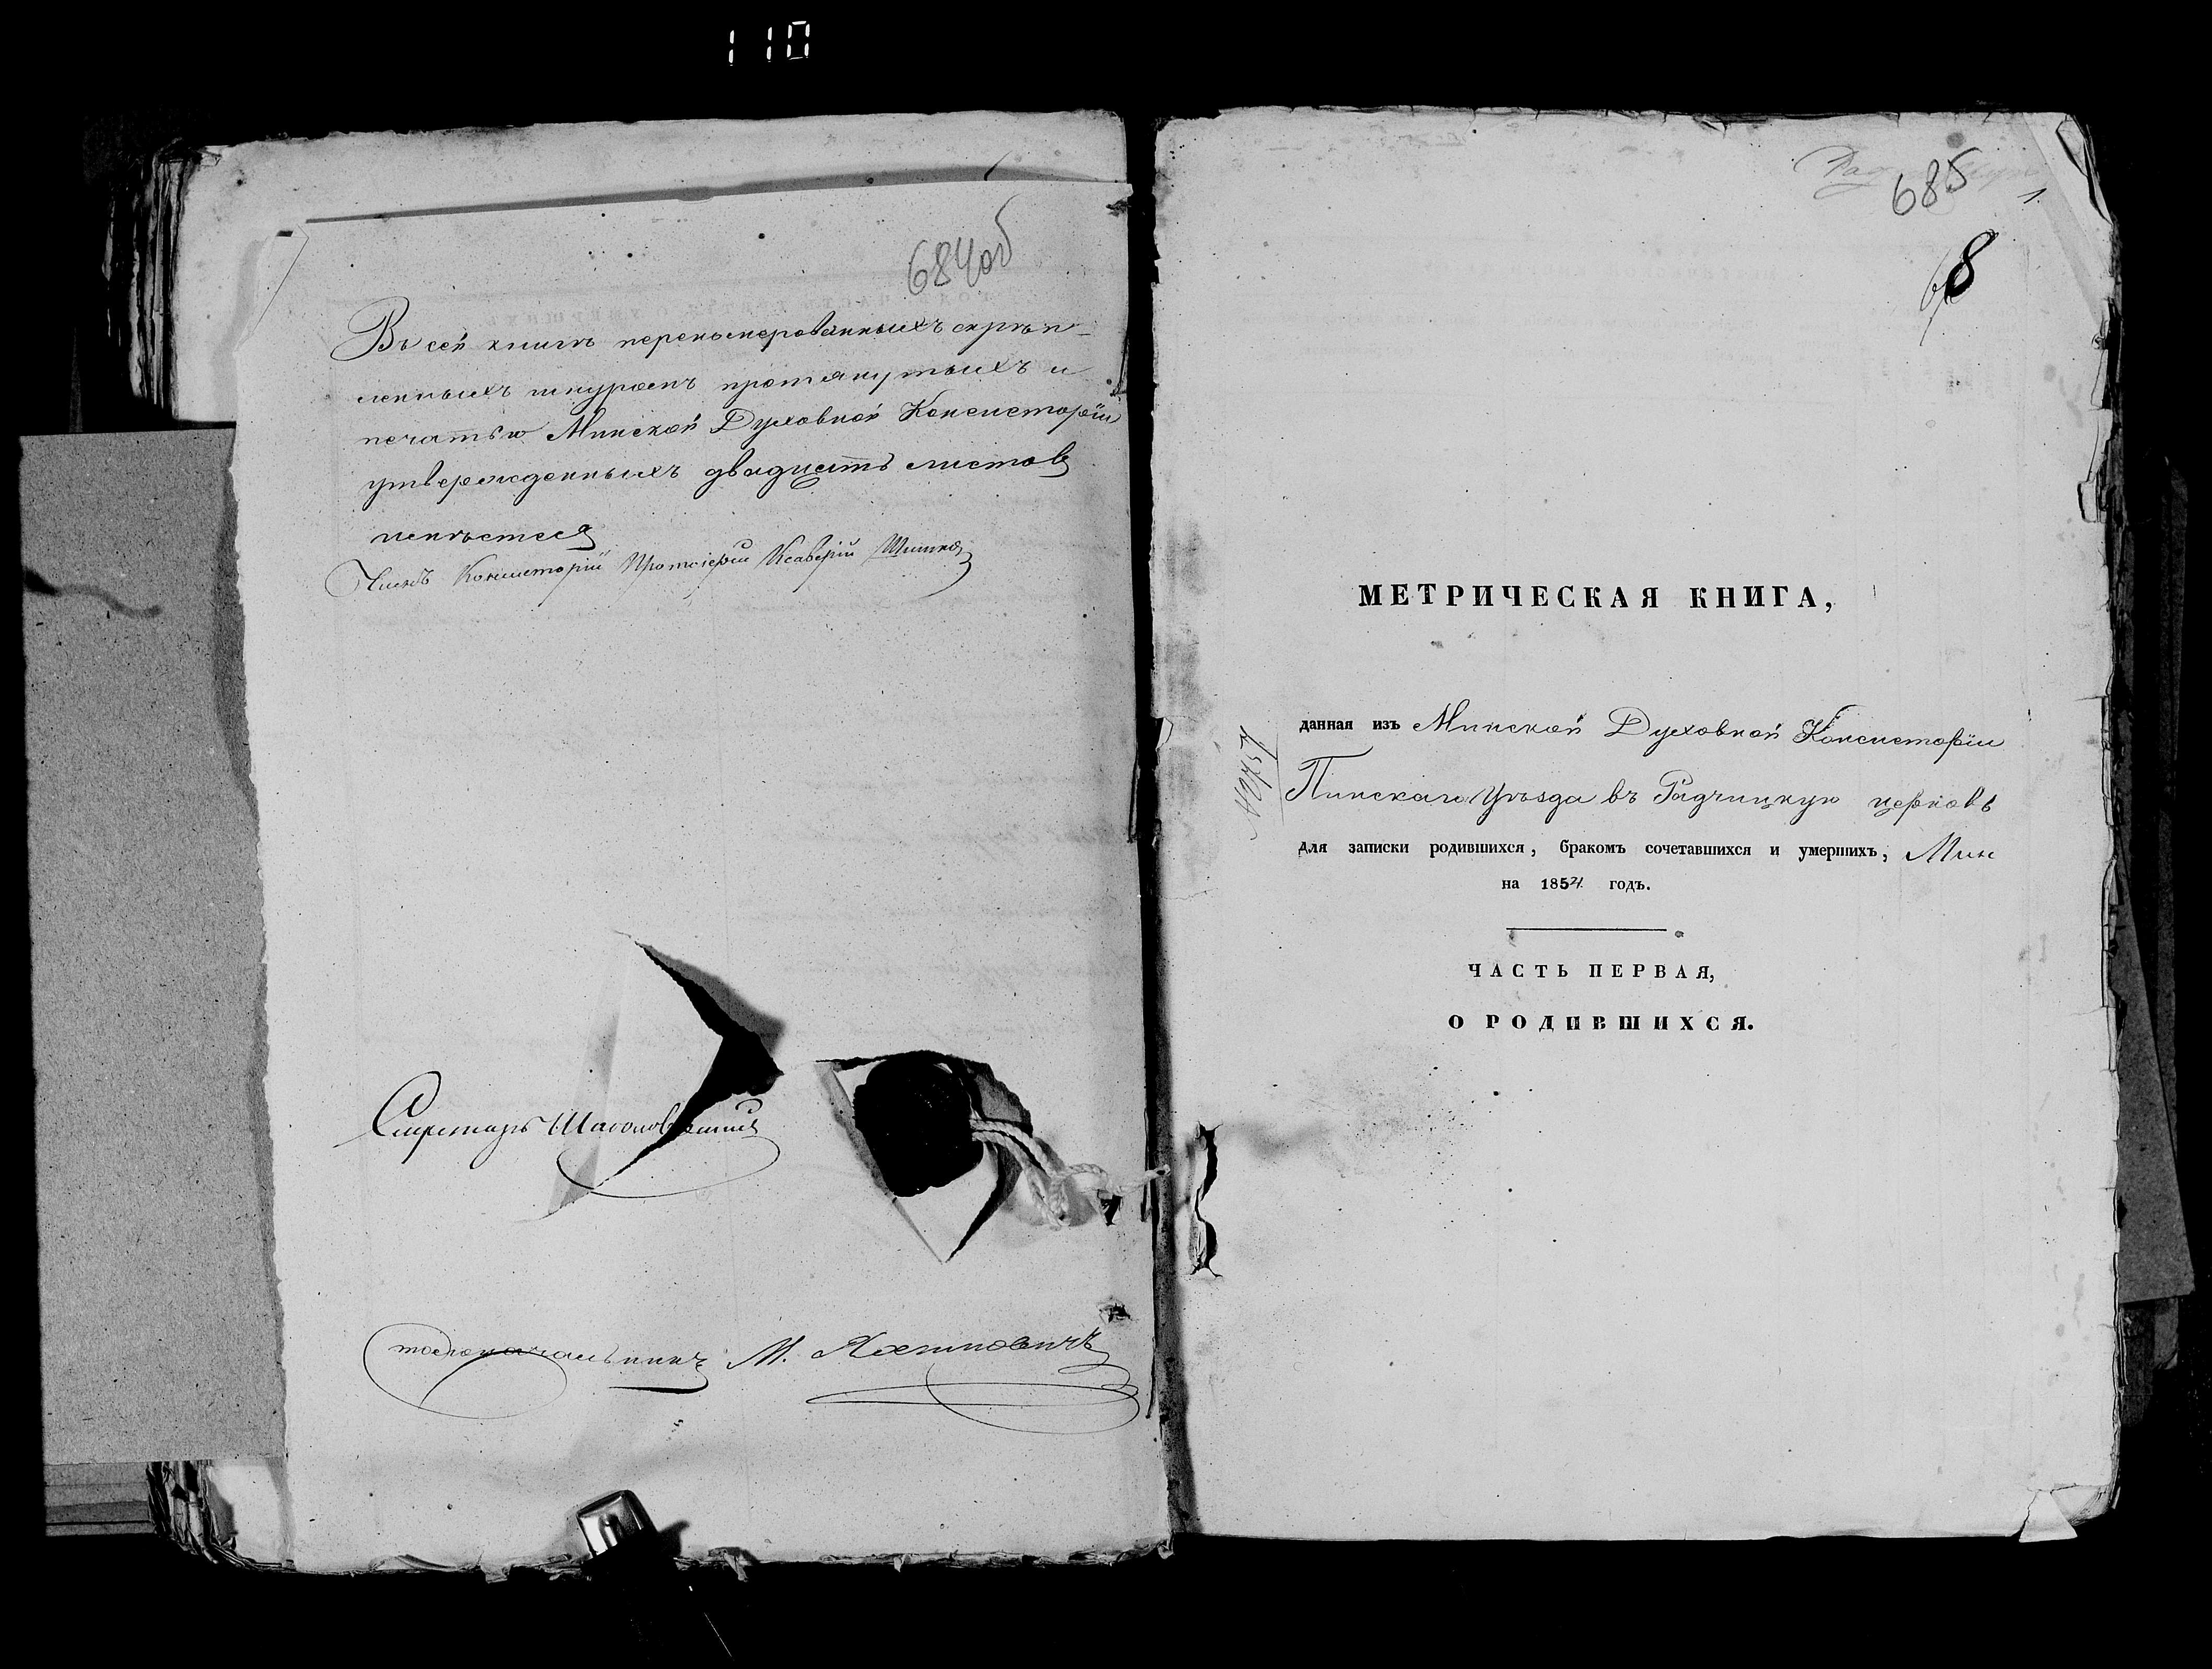 110
684об
Въ сей книгѣ перенумерованныхъ скрѣп-
ленныхъ шнуромъ протянутыхъ и
печатью Минской Духовной Консисторіи
утвержденныхъ двадцать листовъ
имѣется
Членъ Консисторіи Протоіерей Ксаверій
Секретарь
Столоначальникъ М.
685
1
8
МЕТРИЧЕСКАЯ КНИГА,
данная изъ Минской Духовной Консисторіи
Пинскаго Уѣзда въ Радчицкую церковь
для записки родившихся, бракомъ сочетавшихся и умершихъ,
на 1854 годъ.
ЧАСТЬ ПЕРВАЯ,
О РОДИВШИХСЯ.